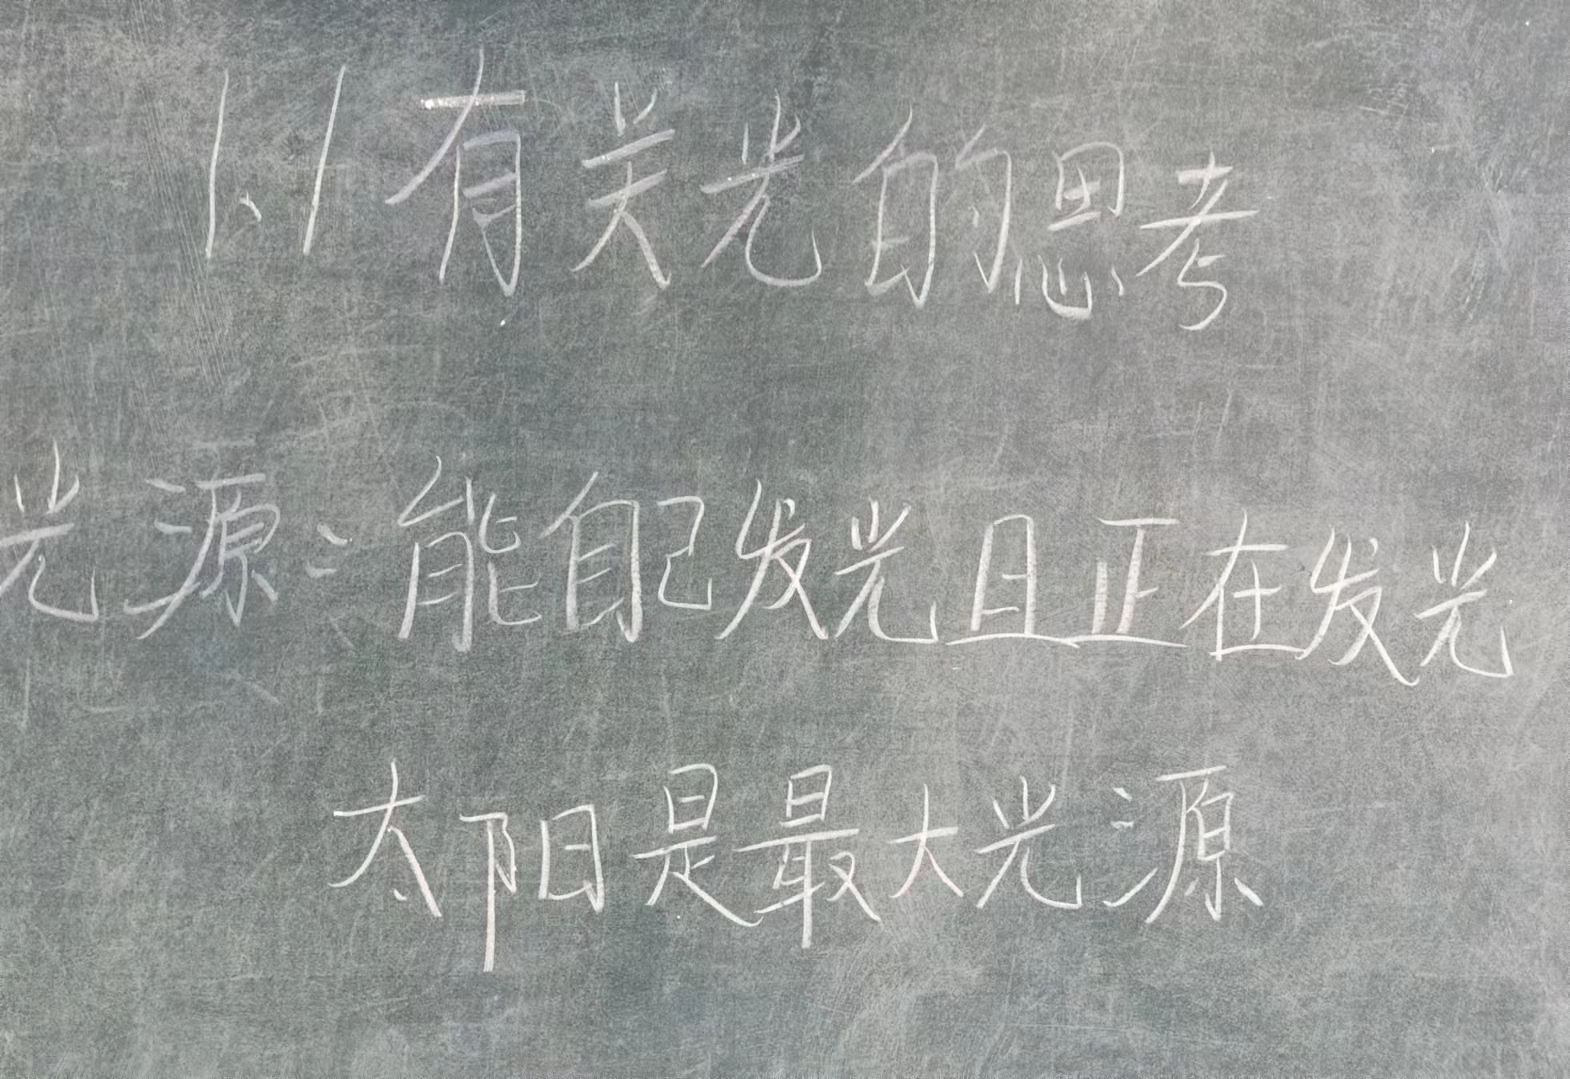 1.1有关光的思考
光源:能自己发光且正在发光
太阳是最大光源